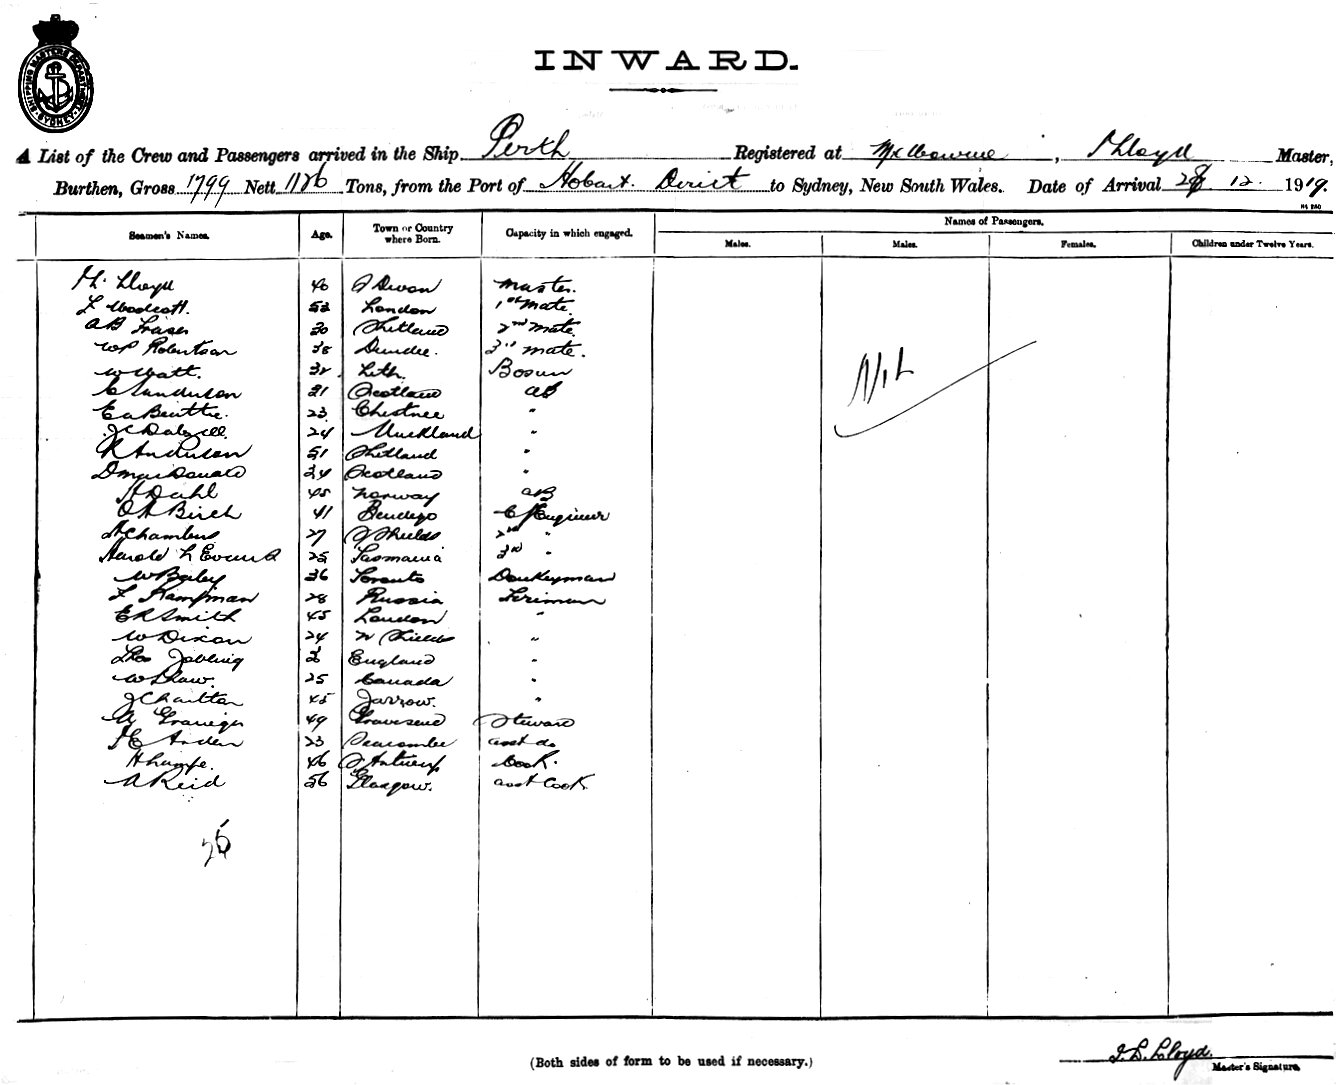 SHIPPING MASTER'S DEPARTMENT SYDNEY
INWARD.
A List of the Crew and Passengers arrived in the Ship Perth Registered at Melbourne, Lloyd Master,
Burthen, Gross 1799 Nett 1126 Tons, from the Port of Hobart Direct to Sydney, New South Wales. Date of Arrival 28 12 1919.
Seamen's Names. Age. Town or Country where Born. Capacity in which engaged. Names of Passengers.
Males. Males. Females. Children under Twelve Years.
Lloyd 40 Devon Master.
Woolcott. 52 London 1st Mate
AB Fraser 30 Shetland 2nd Mate
WP Robertson 38 Dundee. 3rd Mate.
W Watt. 32 Leith. Bosun
Sanderson 21 Scotland AB
Beattie. 23 "
JC Dalzell 24 Auckland "
R Anderson 51 Shetland "
D MacDonald 24 Scotland "
H Dahl 45 Norway AB
Birch 41 Bendigo C Engineer
Chambers 27 S Shields 2nd "
Harold L Evans 25 Tasmania 3rd "
W Bailey 36 Toronto Donkeyman
Kampman 28 Russia Fireman
ER Smith 45 London "
W Dixon 24 N Shields "
Thos Jobling England "
W Shaw. 25 Canada "
J Charlton 45 Jarrow. "
A Granger 49 Gravesend Steward
Arden 23 Seacombe asst do
46 Antwerp Cook.
A Reid 56 Glasgow. asst Cook
Nil
(Both sides of form to be used if necessary.)
Lloyd.
Master's Signature.